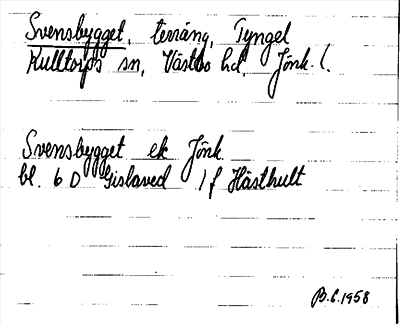 Svensbygget, terräng, Tyngel
Kulltorps sn, Västbo hd, Jönk. l.
Svensbygget ek Jönk.
bl. 6 D Gislaved 1 f Hästhult
B.E. 1958